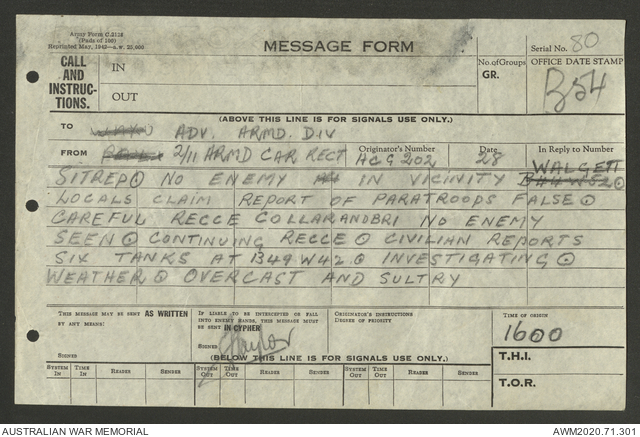 Army Form C.2128
(Pads of 100)
Reprinted May, 1942—a.w. 25,000
MESSAGE FORM
Serial No. 80
CALL AND INSTRUCTIONS.
IN
OUT
No. of Groups
GR.
OFFICE DATE STAMP
B54
(ABOVE THIS LINE IS FOR SIGNALS USE ONLY.)
TO ADV. ARMD. DIV
FROM 2/11 ARMD CAR REGT
Originator's Number
ACG 202
Date
28
In Reply to Number
WALGETT
SITREP ⊙ NO ENEMY IN VICINITY ⊙
LOCALS CLAIM REPORT OF PARATROOPS FALSE ⊙
CAREFUL RECCE COLLARANDBRI NO ENEMY
SEEN ⊙ CONTINUING RECCE ⊙ CIVILIAN REPORTS
SIX TANKS AT B49 W42 ⊙ INVESTIGATING ⊙
WEATHER ⊙ OVERCAST AND SULTRY
THIS MESSAGE MAY BE SENT AS WRITTEN
BY ANY MEANS:
SIGNED
IF LIABLE TO BE INTERCEPTED OR FALL
INTO ENEMY HANDS, THIS MESSAGE MUST
BE SENT IN CYPHER
SIGNED
ORIGINATOR'S INSTRUCTIONS
DEGREE OF PRIORITY
TIME OF ORIGIN
1600
T.H.I.
T.O.R.
(BELOW THIS LINE IS FOR SIGNALS USE ONLY.)
SYSTEM IN TIME IN READER SENDER SYSTEM OUT TIME OUT READER SENDER SYSTEM OUT TIME OUT READER SENDER
AUSTRALIAN WAR MEMORIAL
AWM2020.71.301